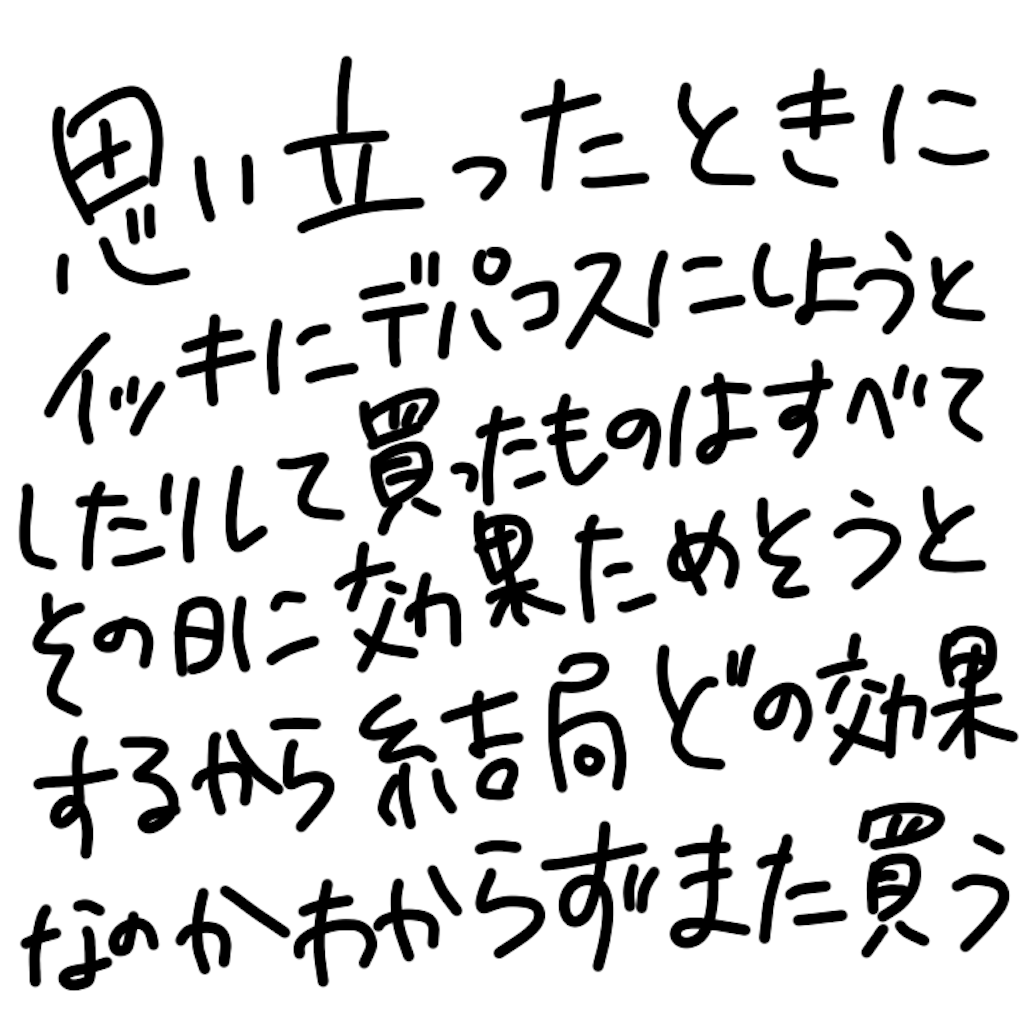 思い立ったときに
イッキにデパコスにしようと
しだりして買ったものはすべて
その日に効果ためそうと
するから結局どの効果
なのかわからずまた買う